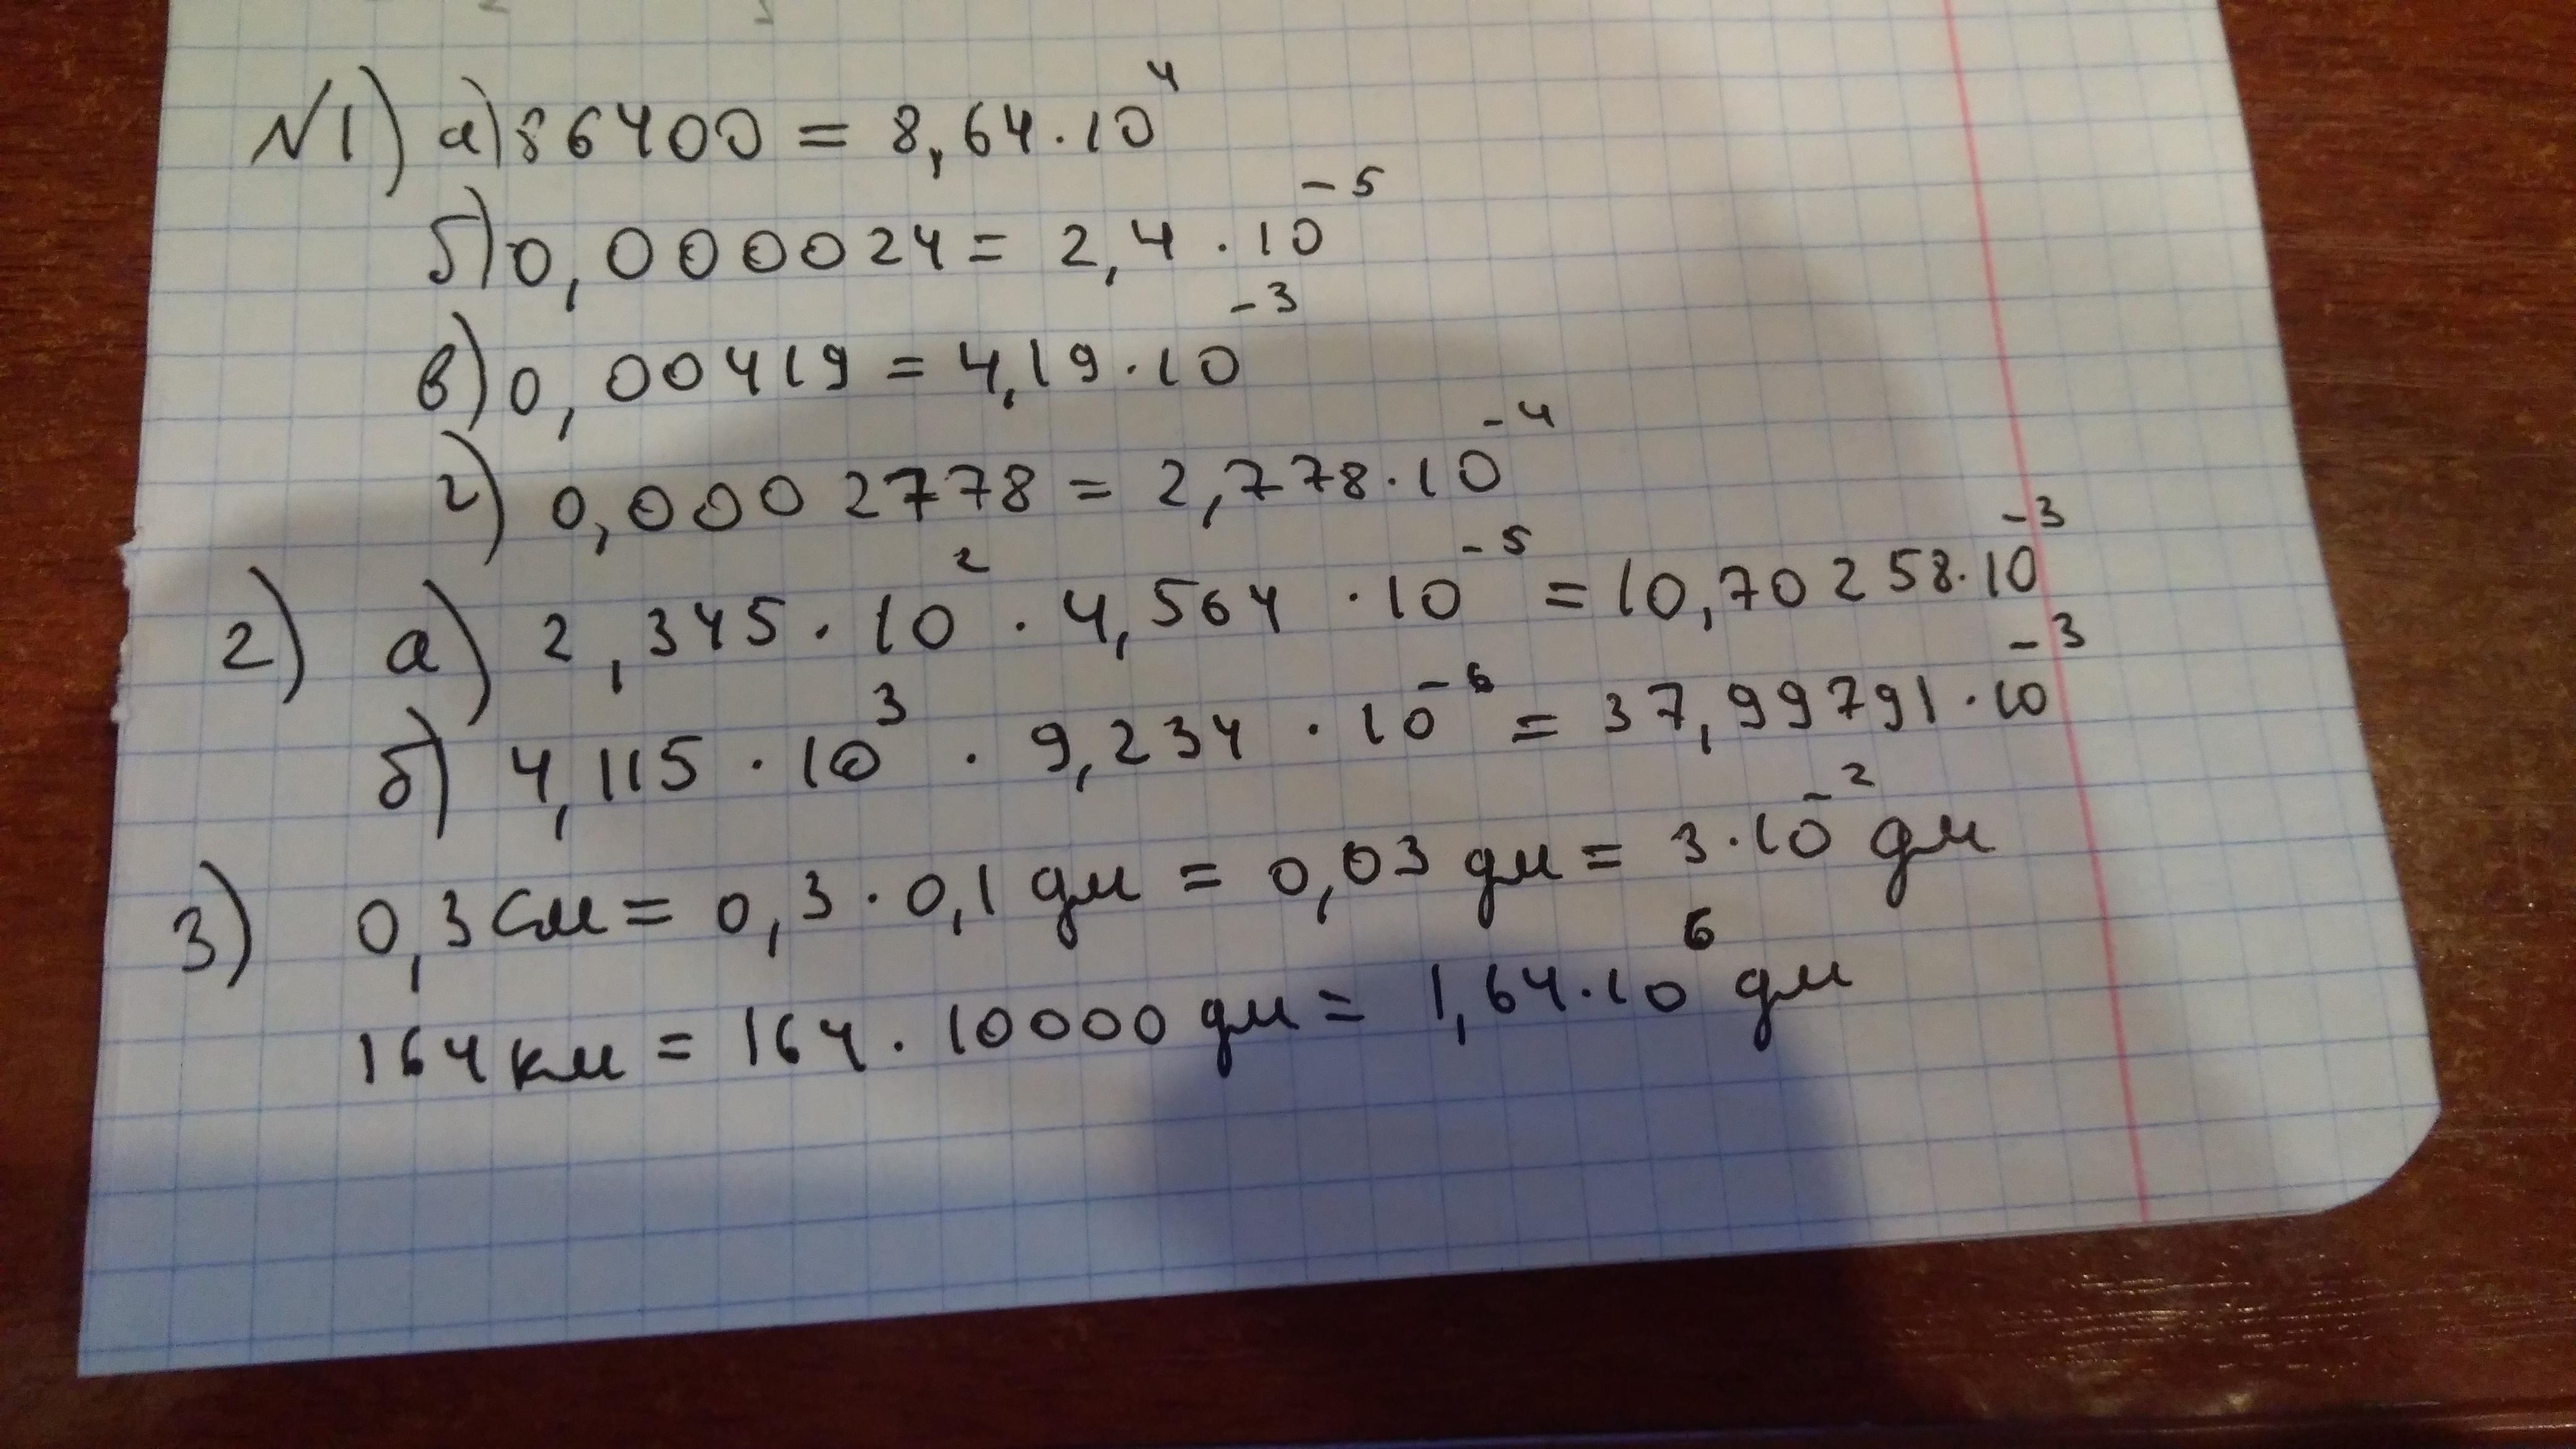 N1) а) 86400 = 8,64·10⁴
б) 0,000024 = 2,4·10⁻⁵
в) 0,00419 = 4,19·10⁻³
г) 0,0002778 = 2,778·10⁻⁴
2) а) 2,345·10²·4,564·10⁻⁵ = 10,70258·10⁻³
б) 4,115·10³·9,234·10⁻⁶ = 37,99791·10⁻³
3) 0,3 см = 0,3·0,1 дм = 0,03 дм = 3·10⁻² дм
164 км = 164·10000 дм = 1,64·10⁶ дм